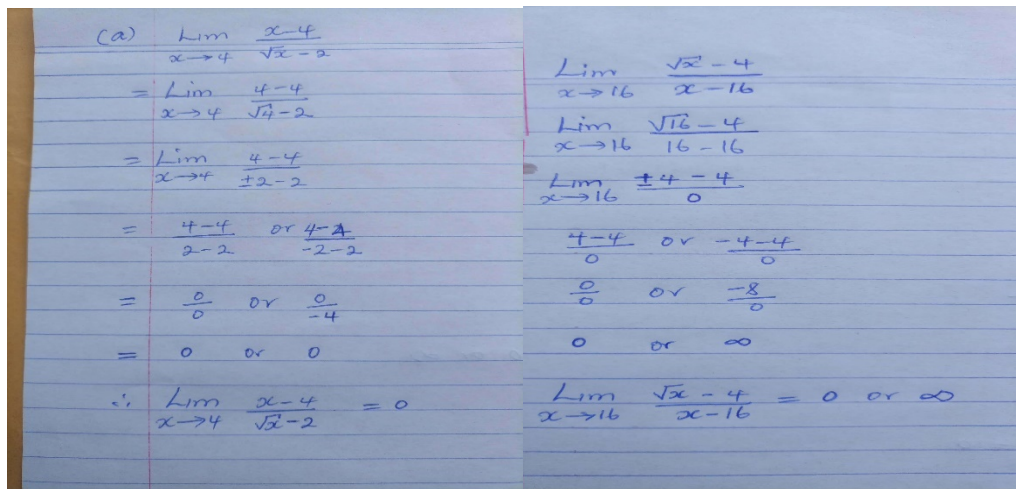 (a) Lim x→4 x-4/√x - 2
= Lim x→4 4-4/√4-2
= Lim x→4 4-4/±2-2
= 4-4/2-2 or 4-4/-2-2
= 0/0 or 0/-4
= 0 or 0
∴ Lim x→4 x-4/√x-2 = 0
Lim x→16 √x - 4/x - 16
Lim x→16 √16 - 4/16 - 16
Lim x→16 ±4 - 4/0
4-4/0 or -4-4/0
0/0 or -8/0
0 or ∞
Lim x→16 √x - 4/x-16 = 0 or ∞